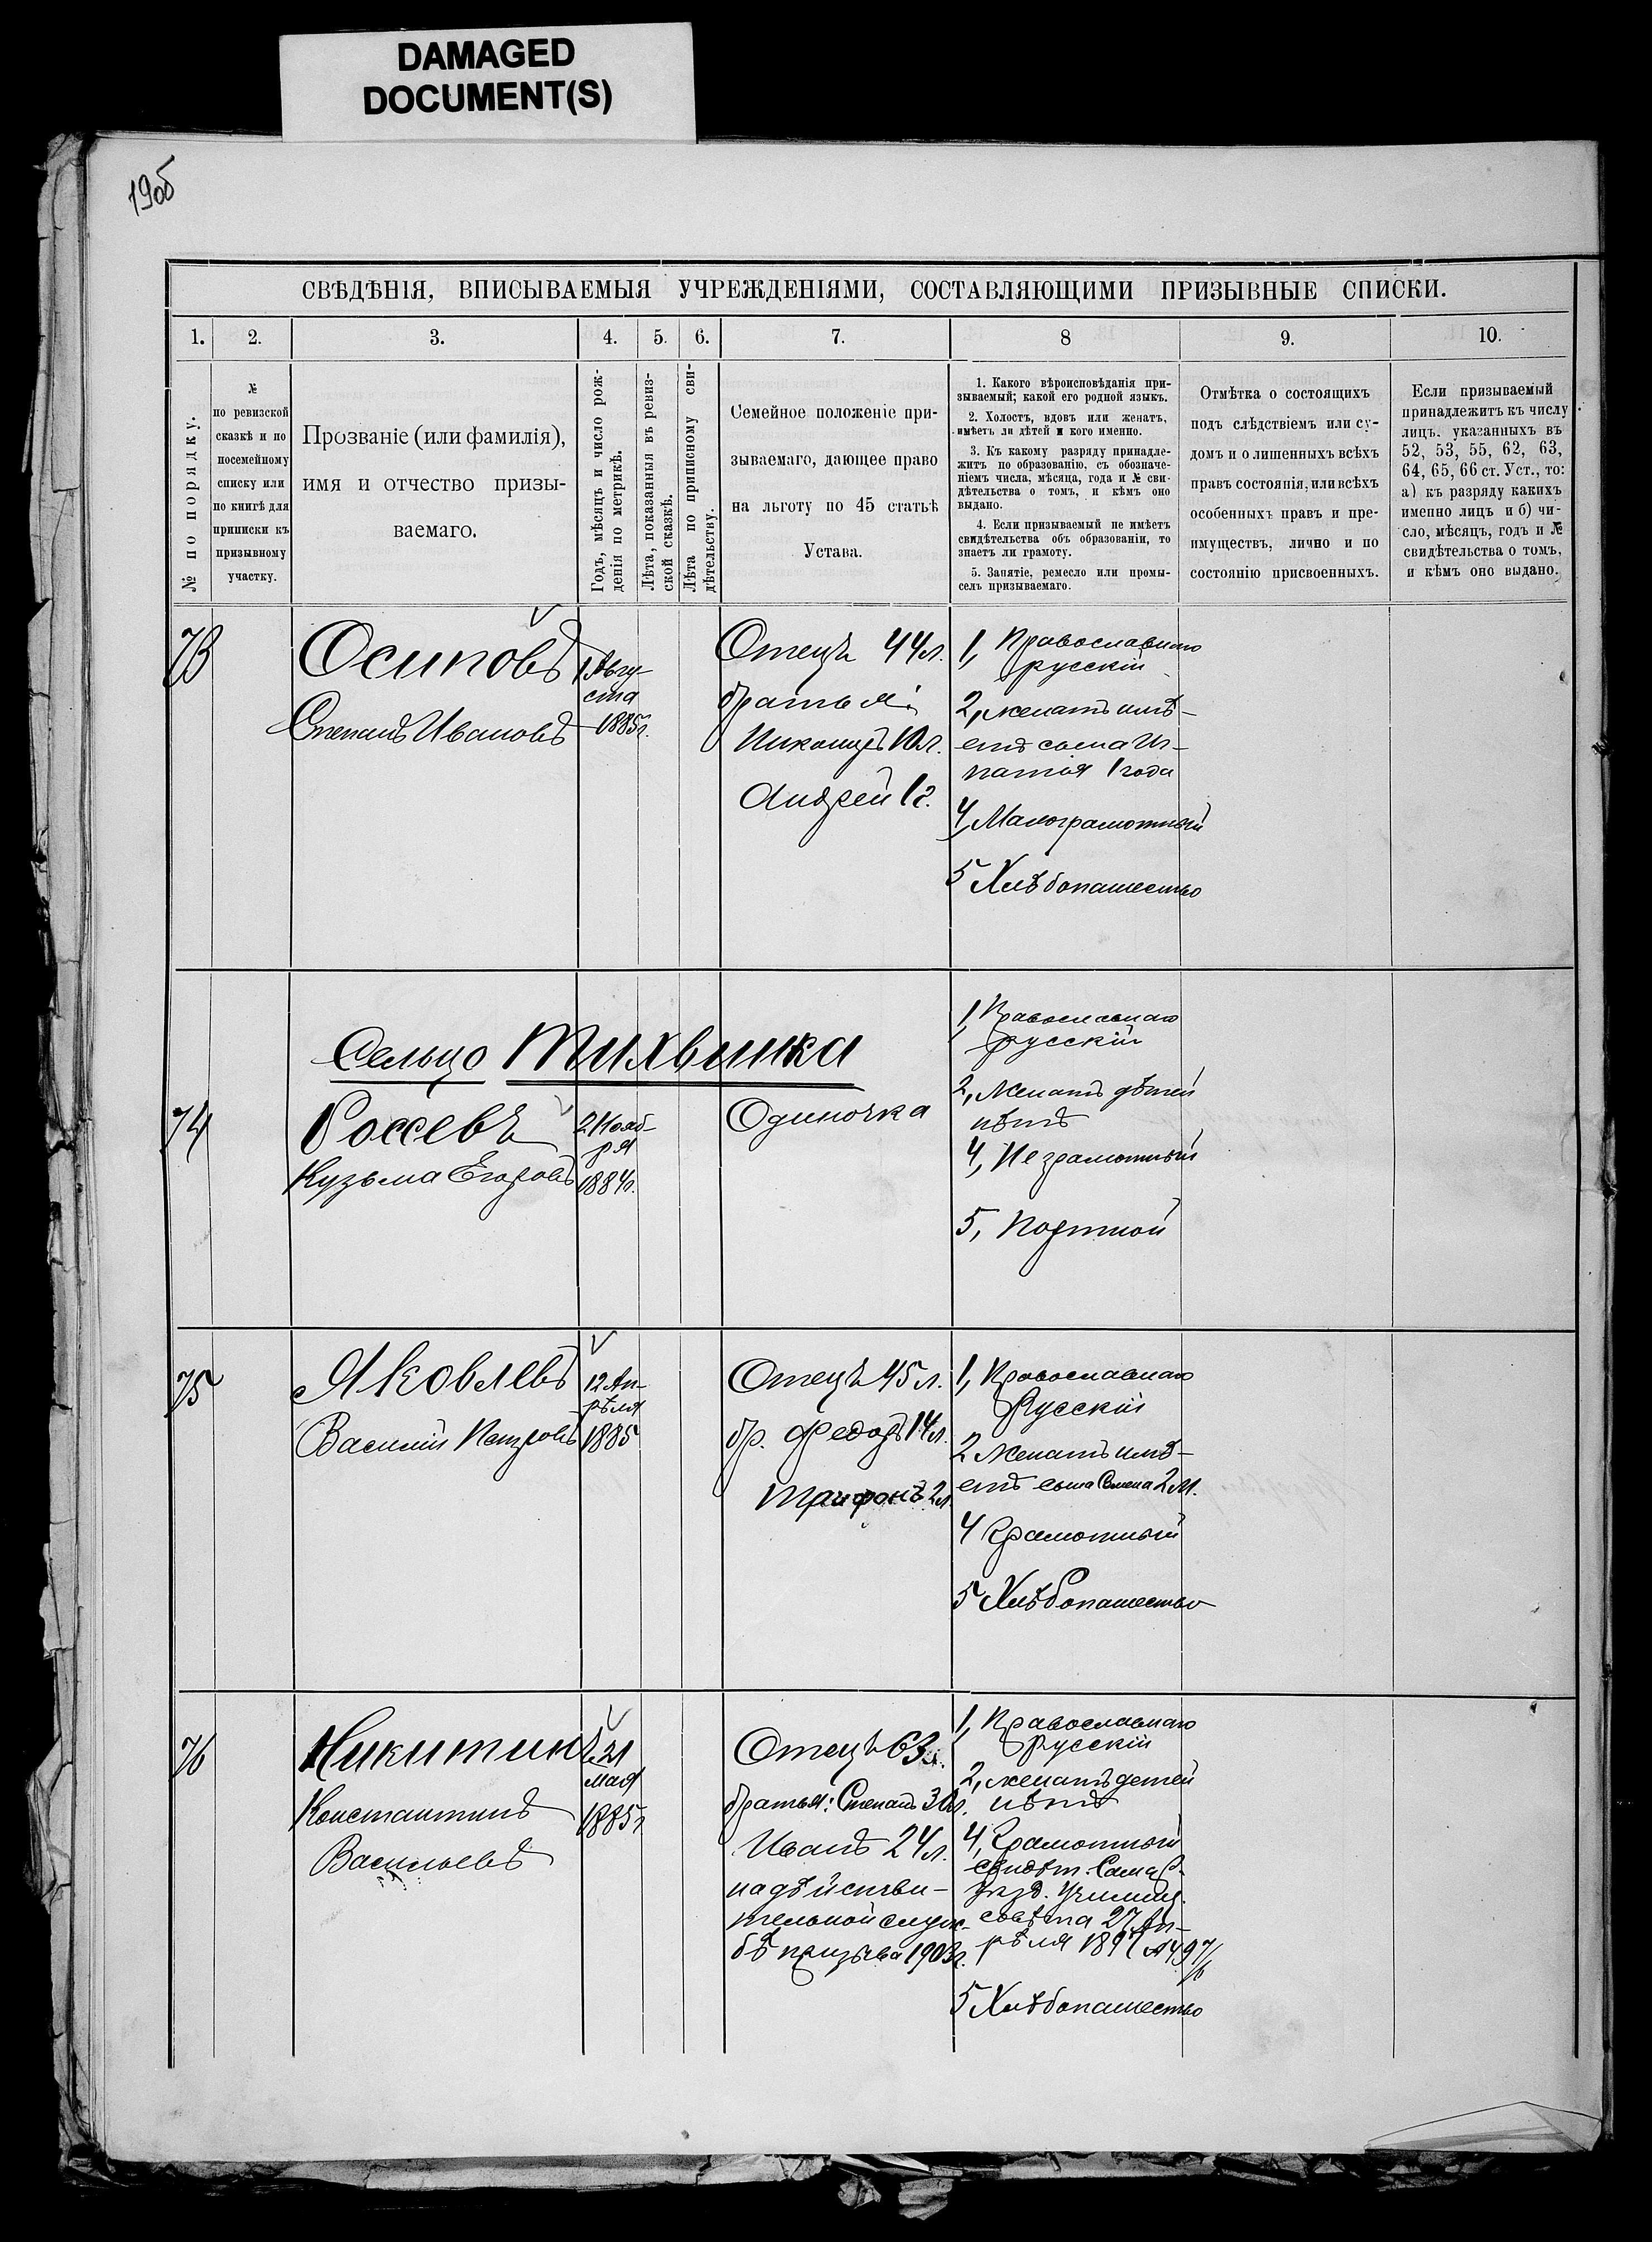 DAMAGED
DOCUMENT(S)
1906
СВѢДѢНІЯ, ВПИСЫВАЕМЫЯ УЧРЕЖДЕНІЯМИ, СОСТАВЛЯЮЩИМИ ПРИЗЫВНЫЕ СПИСКИ.
1. 2. 3. 4. 5. 6. 7. 8 9. 10.
№ по порядку.
№
по ревизской
сказкѣ и по
посемейному
списку или
по книгѣ для
приписки къ
призывному
участку.
Прозваніе (или фамилія),
имя и отчество призы-
ваемаго.
Годъ, мѣсяцъ и число рож-
денія по метрикѣ.
Лѣта, показанныя въ ревиз-
ской сказкѣ.
Лѣта по приписному сви-
дѣтельству.
Семейное положеніе при-
зываемаго, дающее право
на льготу по 45 статьѣ
Устава.
1. Какого вѣроисповѣданія при-
зываемый; какой его родной языкъ.
2. Холостъ, вдовъ или женатъ,
имѣетъ ли дѣтей и кого именно.
3. Къ какому разряду принадле-
житъ по образованію, съ обозначе-
ніемъ числа, мѣсяца, года и № сви-
дѣтельства о томъ, и кѣмъ оно
выдано.
4. Если призываемый не имѣетъ
свидѣтельства объ образованіи, то
знаетъ ли грамоту.
5. Занятіе, ремесло или промы-
селъ призываемаго.
Отмѣтка о состоящихъ
подъ слѣдствіемъ или су-
домъ и о лишенныхъ всѣхъ
правъ состоянія, или всѣхъ
особенныхъ правъ и пре-
имуществъ, лично и по
состоянію присвоенныхъ.
Если призываемый
принадлежитъ къ числу
лицъ, указанныхъ въ
52, 53, 55, 62, 63,
64, 65, 66 ст. Уст., то:
а) къ разряду какихъ
именно лицъ и б) чи-
сло, мѣсяцъ, годъ и №
свидѣтельства о томъ,
и кѣмъ оно выдано.
73
Осиповъ
Степанъ Ивановъ
1 Авгу-
ста
1885г.
Отецъ 44л.
братья:
Никоноръ 10л.
Андрей 1г.
1, Православнаго
русскій
2, женатъ имѣ-
етъ сына Иг-
натія 1 года
4, Малограмотный
5 Хлѣбопашество
Сельцо Тихвинка
74
Россевъ
Кузьма Егоровъ
2 Нояб-
ря
1884г.
Одиночка
1, Православнаго
русскій
2, Женатъ дѣтей
нѣтъ
4, Не грамотный
5, Портной
75
Яковлевъ
Василій Петровъ
12 Ап-
рѣля
1885
Отецъ 45 л.
бр. Федоръ 14л.
Трифонъ 2л
1, Православнаго
Русскій
2 Женатъ имѣ-
етъ сына Семена 2 м.
4 Грамотный
5 Хлѣбопашество
76
Никитинъ
Константинъ
Васильевъ
21
мая
1885г
Отецъ 63л.
братья: Степанъ 30л.
Иванъ 24 л.
на дѣйстви-
тельной служ-
бѣ призыва 1903г.
1, Православнаго
русскій
2, женатъ детей
нѣтъ
4, Грамотный
свидѣт. Самар.
уѣзд. Училищ.
совѣта 27 Ап-
рѣля 1897
5 Хлѣбопашество